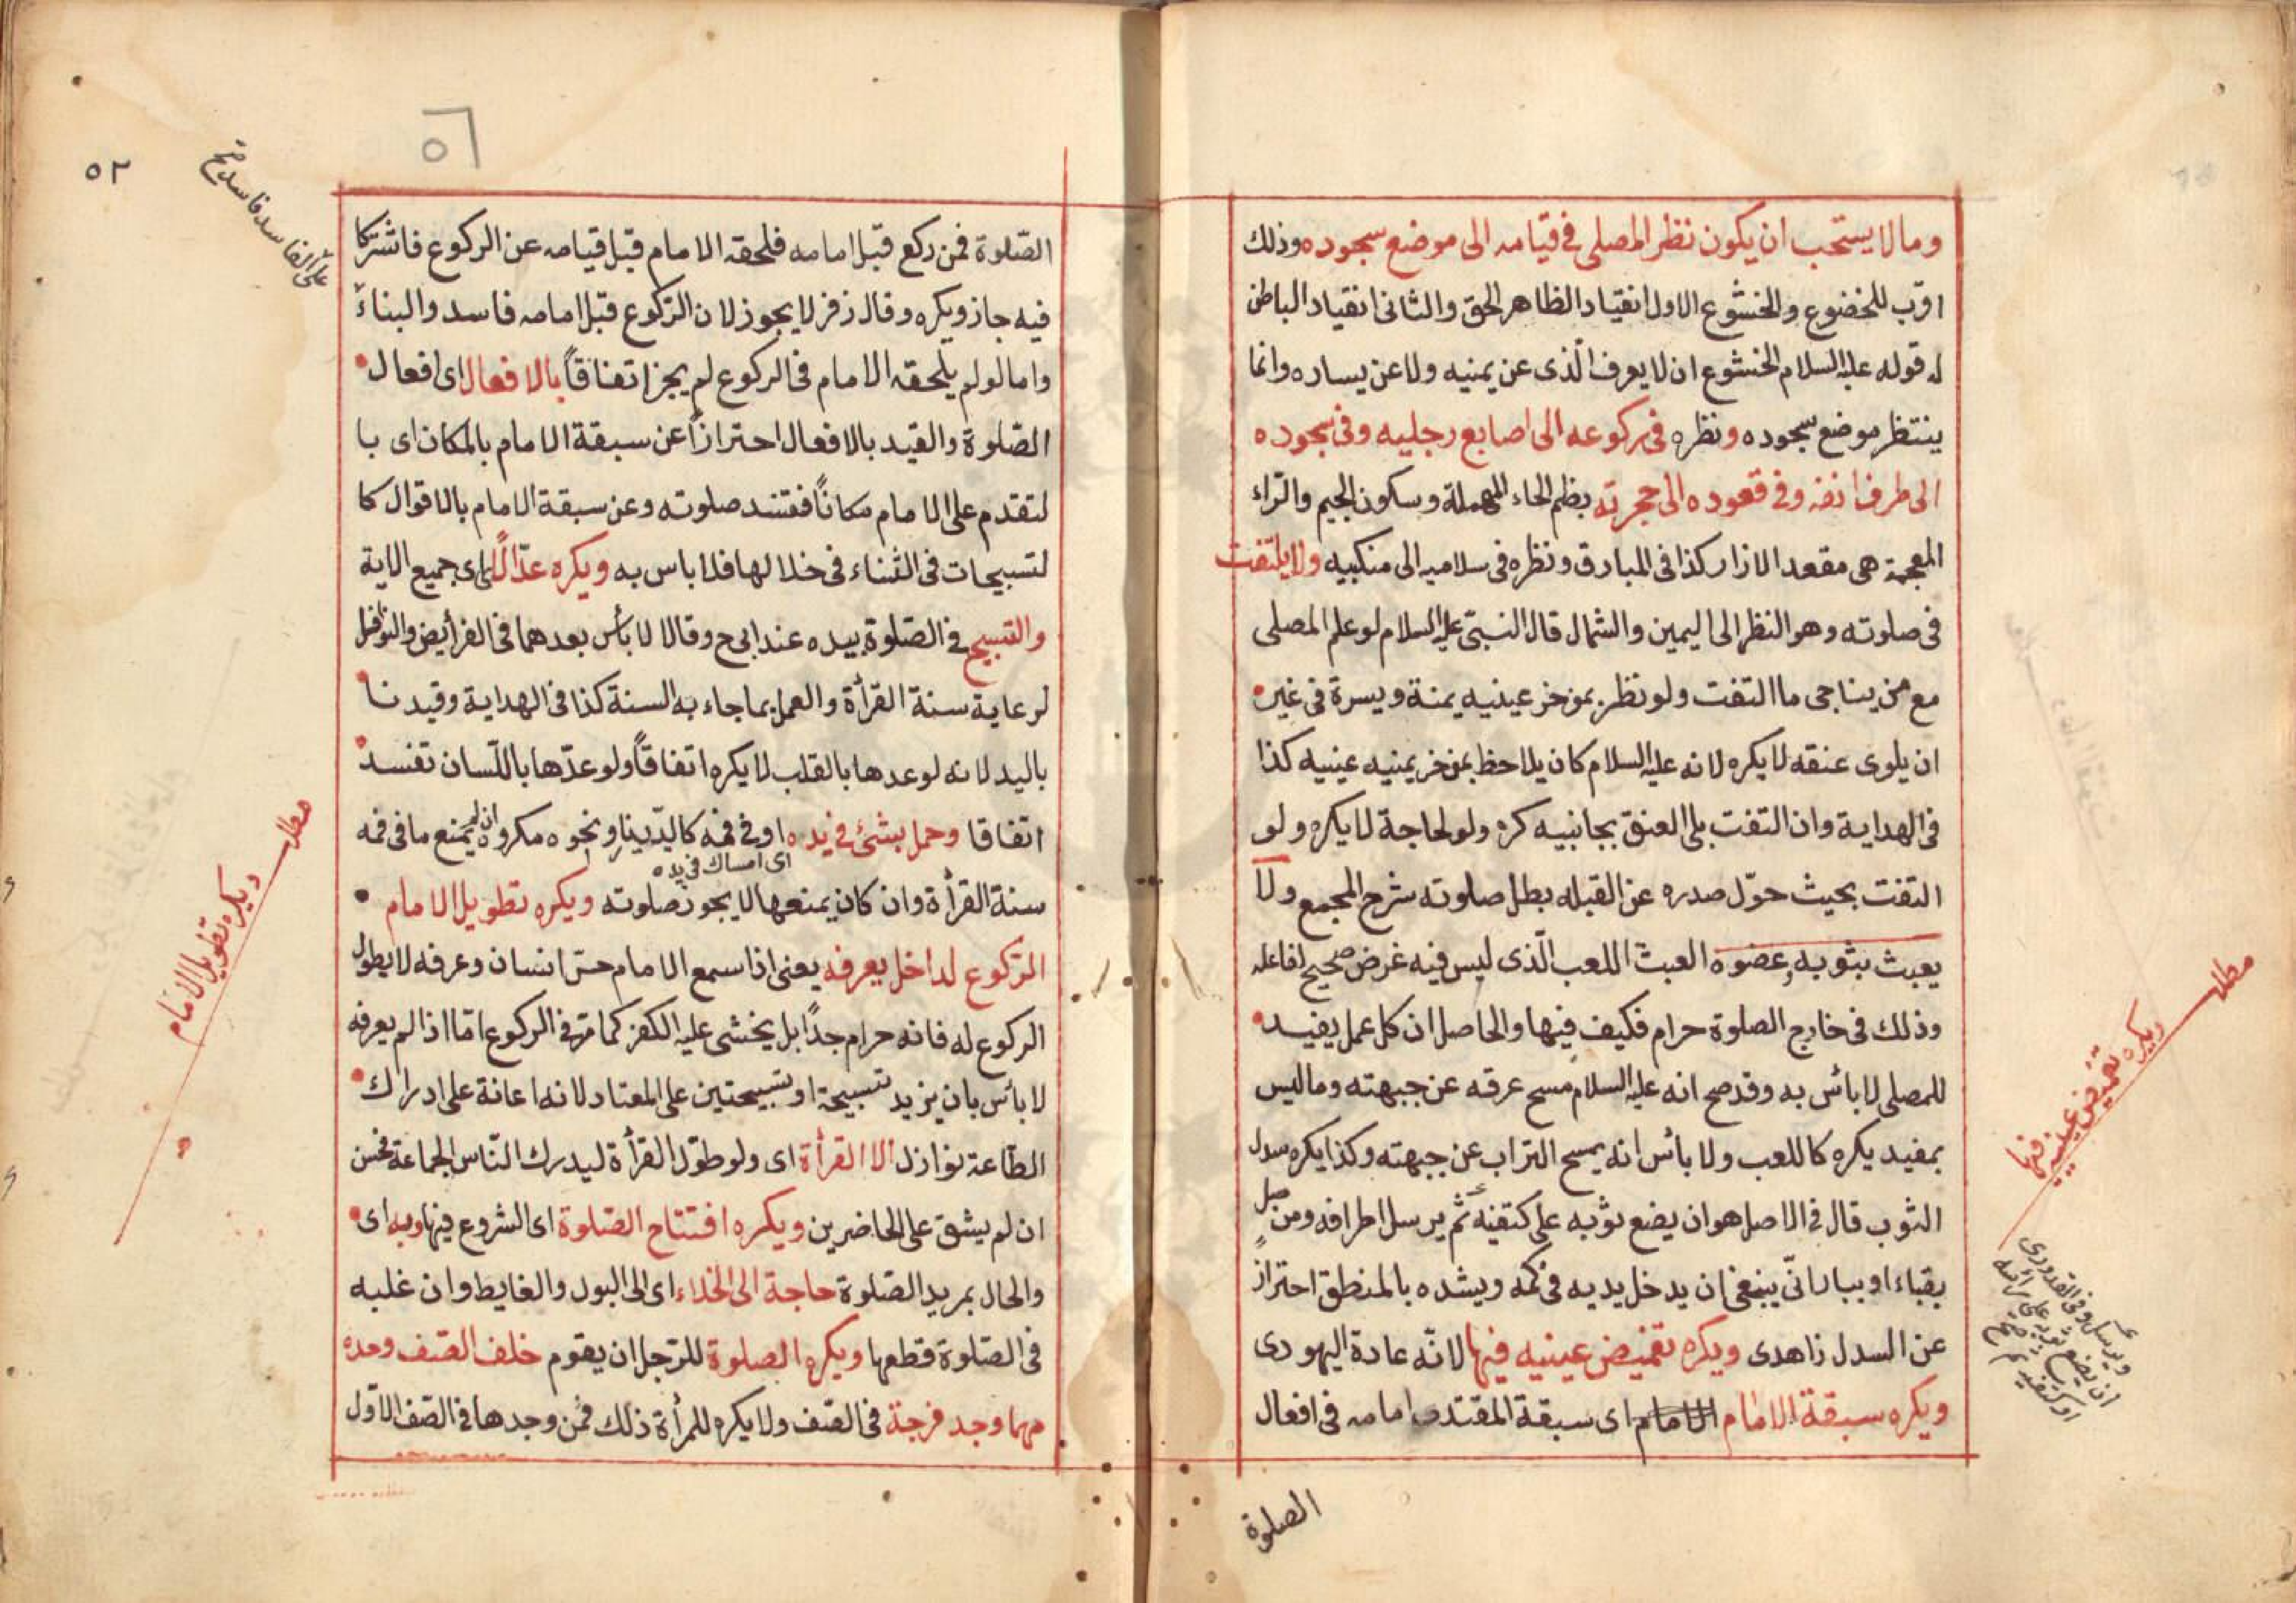 وما لا يستحب ان يكون نظر المصلى فى قيامه الى موضع سجوده وذلك
اقرب للخضوع والخشوع الاول انقياد الظاهر للحق والثانى انقياد الباطن
له قوله عليه السلام الخشوع ان لا يعرف الّذى عن يمنيه ولا عن يساره وانما
ينتظر موضع سجوده ونظره فى ركوعه الى اصابع رجليه وفى سجوده
الى طرف انفه وفى قعوده الى حجرته بظم الحاء المهملة وسكون الجيم والزاء
المعجمة هى مقعد الازار كذا فى المبارق ونظره فى سلاميه الى منكبيه ولا يلتفت
فى صلوته وهو النظر الى اليمين والشمال قال النبىّ عليه السلام لو علم المصلى
مع من يناجى ما التفت ولو نظر بموخر عينيه يمنة ويسرة فى غير
ان يلوى عنقه لا يكره لانه عليه السلام كان يلاحظ بموخر يمنيه عينيه كذا
فى الهداية وان التفت بلى العنق بجانبيه كره ولو لحاجة لا يكره ولو
التفت بحيث حوّل صدره عن القبله بطل صلوته شرح المجمع ولا
يعبث بثوبه وعضوه العبث اللعب الّذى ليس فيه غرض صحيح لفاعله
وذلك فى خارج الصلوة حرام فكيف فيها والحاصل ان كل عمل يفيد
للمصلى لا بائس به وقد صح انه عليه السلام مسح عرقه عن جبهته وما ليس
بمفيد يكره كاللعب ولا بائس انه يمسح التراب عن جبهته وكذا يكره سدل
الثوب قال فى الاصل هو ان يضع ثوبه على كتفيه ثم يرسل اطرافه ومن صل
بقباء او ببارانّى ينبغى ان يدخل يديه فى كمه ويشده بالمنطق احترازٍ
عن السدل زاهدى ويكره تغميض عينيه فيها لانّه عادة اليهودى
ويكره سبقة الامام الامام اى سبقة المقتدى امامه فى افعال
الصلوة
مطلب
ويكره تغميض عينيه فيها
ويرسل وفى القدورى
ان يضع ثوبه على رأسه
او كتفيه
٥٢
٥٦
على الفاسد فاسد صح
الصّلوة فمن ركع قبل امامه فلحقه الامام قبل قيامه عن الركوع فاشتركا
فيه جاز ويكره وقال زفر لا يجوز لان الرّكوع قبل امامه فاسد والبناءّ
واما لو لم يلحقه الامام فى الركوع لم يجز اتفاقاً بالافعال اى افعال
الصّلوة والقيد بالافعال احترازاً عن سبقة الامام بالمكان اى با
لتقدم على الامام مكاناً ففتسد صلوته وعن سبقة الامام بالاقوال كا
لتسبيحات فى الثناء فى خلالها فلا باس به ويكره عدّ الآى اى جميع الاية
والتسبيح فى الصّلوة بيده عند ابى ح وقالا لا بأس بعدهما فى الفرأيض والنوافل
لرعاية سنة القرأة والعمل بما جاء به السنة كذا فى الهداية وقيدنا
باليد لانه لو عدها بالقلب لا يكره اتفاقاً ولو عدّها باللّسان تفسد
اتفاقا وحمل بشئ فى يده او فى فمه كالدّينار ونحوه مكروه ان لم يمنع ما فى فمه
اى امساك فى يده
سنة القرأة وان كان يمنعها لا يجوز صلوته ويكره تطويل الامام
الرّكوع لداخل يعرفه يعنى اذا سمع الامام حسّ انسان وعرفه لا يطول
الركوع له فانه حرام جدًا بل يخشى عليه الكفر كما مرّ فى الركوع امّا اذا لم يعرفه
لا بائس بان يزيد تسبيحة او تسبيحتين على المعتاد لانه اعانة على ادراك
الطّاعة نوازل الا القرأة اى ولو طوّل القرأة ليدرك النّاس الجماعة فحسن
ان لم يشق على الحاضرين ويكره افتتاح الصّلوة اى الشروع فيها وبه اى
والحال بمريد الصّلوة حاجة الى الخلاء اى الى البول والغايط وان غلبه
فى الصّلوة قطعها ويكره الصلوة للرّجل ان يقوم خلف الصّف وحده
مهما وجد فرجة فى الصّف ولا يكره للمرأة ذلك فمن وجدها فى الصّف الاوّل
مطلب
ويكره تطويل الامام